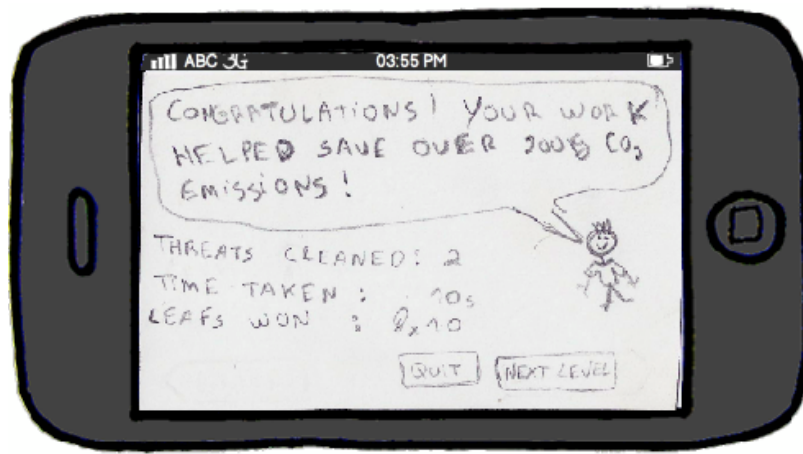 ABC 3G 03:55 PM
CONGRATULATIONS! YOUR WORK
HELPED SAVE OVER 200g CO2
EMISSIONS!
THREATS CLEANED: 2
TIME TAKEN : 10s
LEAFS WON : x10
QUIT NEXT LEVEL